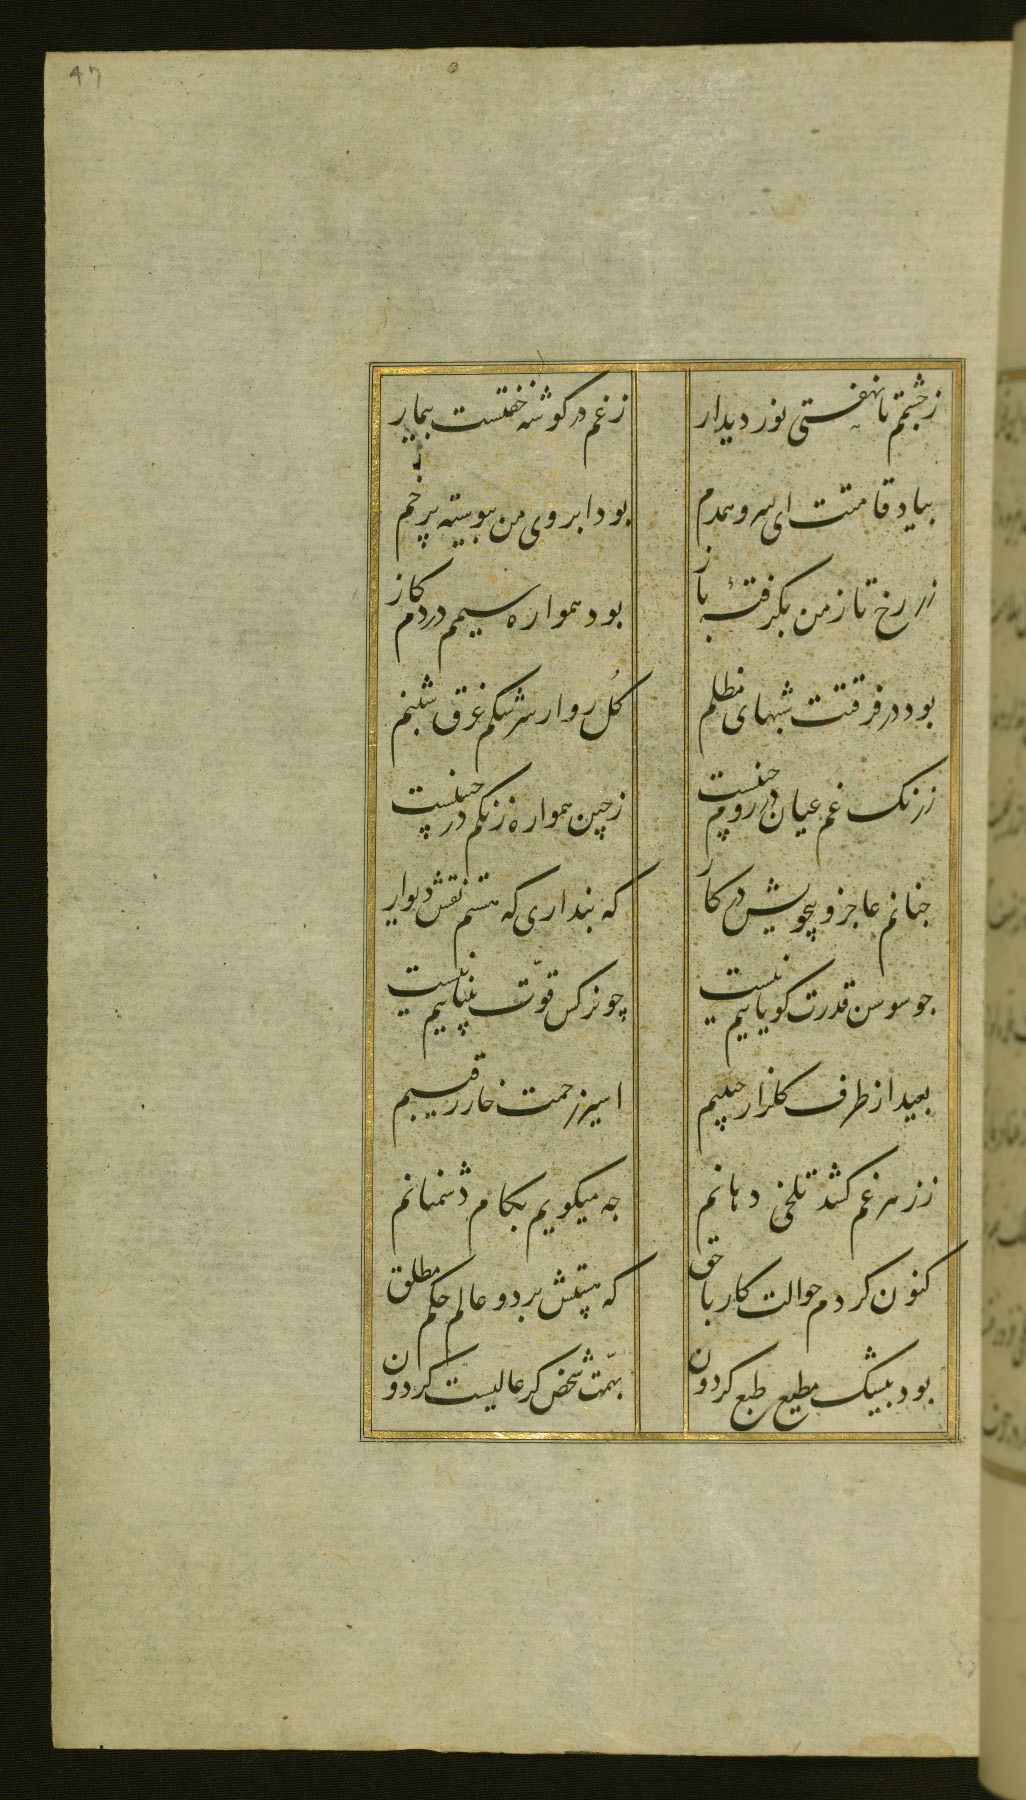 47
زچشمم تا نهفستی نور دیدار
زغم در کوشه خفتست بیمار
بیاد قامتت ای سرو همدم
بود ابروی من پیوسته پرخم
زر رخ تا زمن بگرفتهٔ باز
بود همواره سیمم در دم کاز
بود در فرقتت شبهای مظلم
کُل روار سرشکم غرق شبنم
ززنک غم عیان در رویم چنست
زچین همواره زنکم در چینست
جنانم عاجز و بیخویش در کار
که بنداری که هستم نقش دیوار
جو سوسن قدرت کویاییم نیست
چو نرکس قوّت بیناییم نیست
بعید از طرف کلزار حبیبم
اسیر زحمت خار رقیبم
ززهر غم کشد تلخی دهانم
جه میکویم بکام دشمنانم
کنون کردم حوالت کار با حق
که هستش بر دو عالم حکم مطلق
بود بیشک مطیع طبع کردون
بهمّت شخص کر عالیست کردون